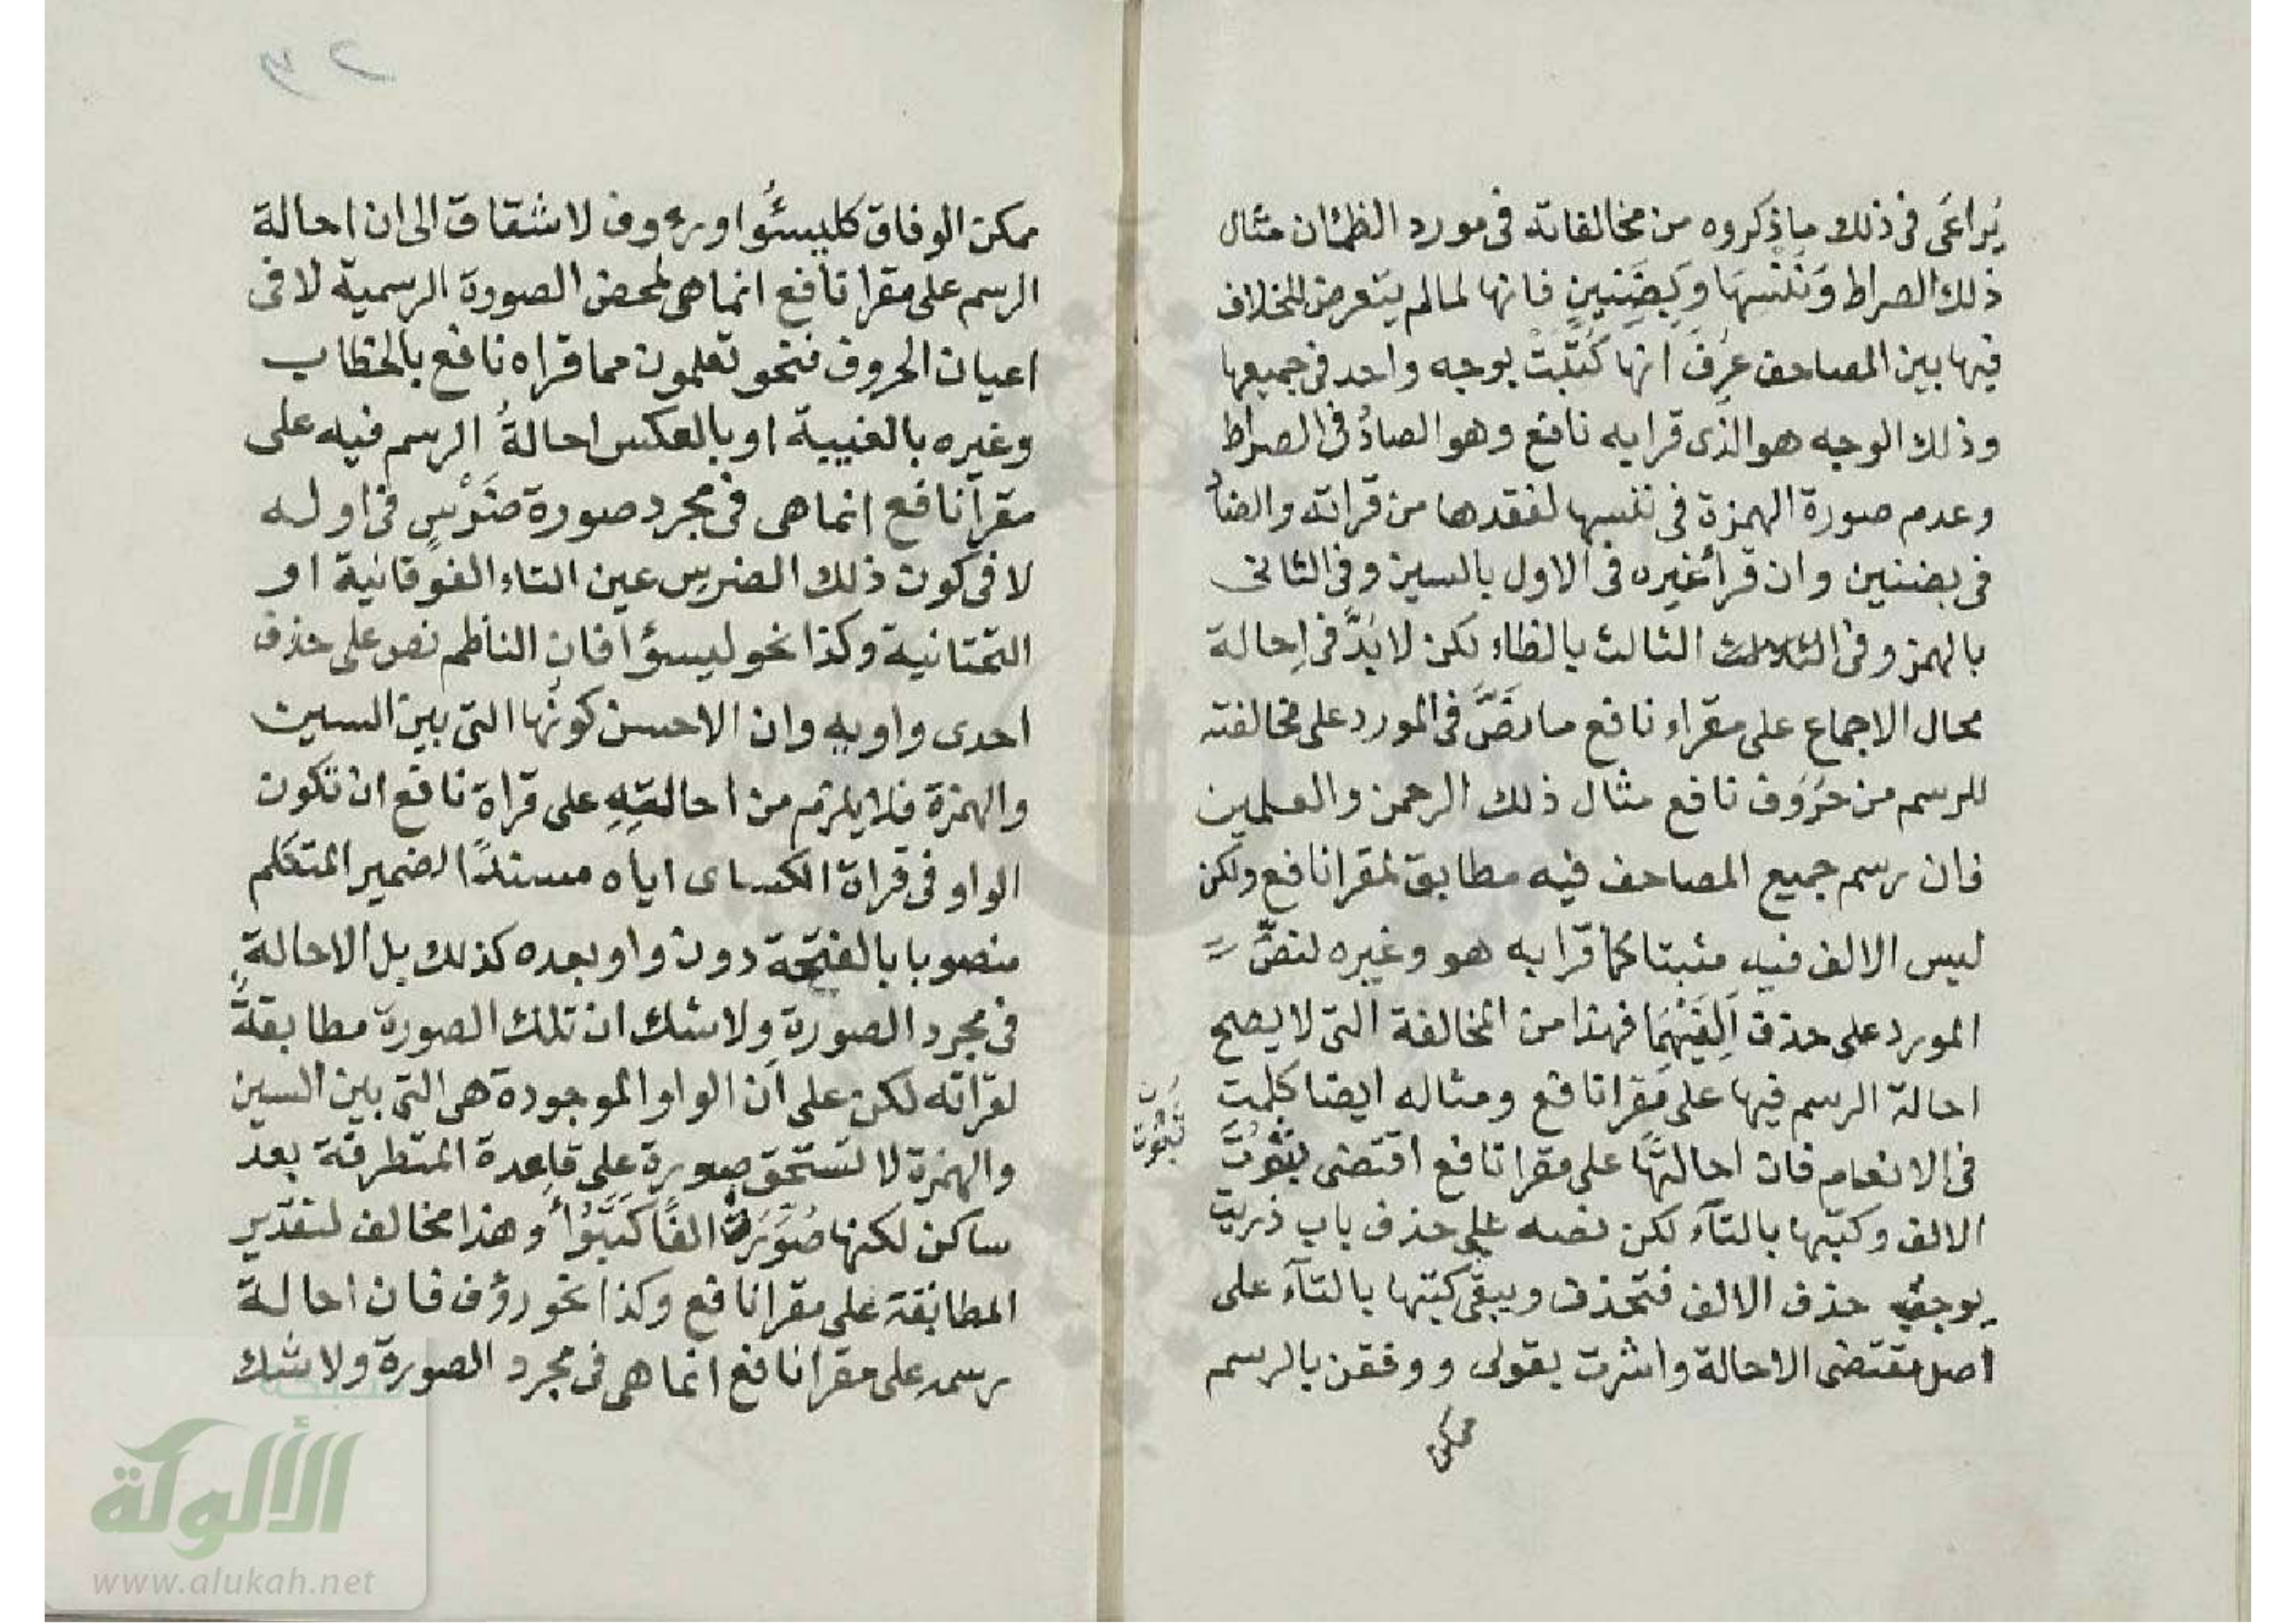 يُراعَى فى ذلك ماذكروه من مخالفاته فى مورد الظمئان مثال
ذلك الصراط وَنُنْسِهَا وَبِضَنِينٍ فانها لمالم يتعرض للخلاف
فيها بين المصاحف عُرِفَ انها كُتِبَتْ بوجه واحد فى جميعها
وذلك الوجه هوالذى قرا به نافع وهو الصادُ فى الصراط
وعدم صورة الهمزة فى ننسها لفقدها من قراته والضادُ
فى بضنين وان قرأ غيره فى الاول بالسين وفى الثانى
بالهمز وفى الثالث بالظاء لكن لا بُدَّ فى احالة
محال الاجماع على مقراء نافع مانَصَّ فى المورد على مخالفته
للرسم من حروف نافع مثال ذلك الرحمن والعلمين
فان رسم جميع المصاحف فيه مطابق لمقرا نافع ولكن
ليس الالف فيه مثبتا كما قرا به هو وغيره لنصِّ
المورد على حذف اَلِفَيْهِمَا فهذا من المخالفة التى لا يصح
احالة الرسم فيها على مَقرا نافع ومثاله ايضا كلمت
فى الانعام فان احالتها على مقرا نافع اقتضى ثبوت
ثبوت
الالف وكتبها بالتآء لكن نصه على حذف باب ذريت
يوجب حذف الالف فتحذف ويبقى كتبها بالتآء على
اصل مقتضى الاحالة واشرت بقولى ووفقن بالرسم
ممكن
ممكن الوفاق كليسئُوا ورءوف لا شقاق الى ان احالة
الرسم على مقرا نافع انماهى لمحض الصورة الرسمية لا فى
اعيان الحروف فنحو تعلمون مما قراه نافع بالخطاب
وغيره بالغيبة او بالعكس احالةُ الرسم فيه على
مقرا نافع انماهى فى مجرد صورة ضَرْسٍ فى اوله
لا فى كون ذلك الضرس عين التاء الفوقانية او
التحتانية وكذا نحو ليسؤا فان الناظم نص على حذف
احدى واويه وان الاحسن كونُها التى بين السين
والهمزة فلا يلزم من احالتِهِ على قراة نافع ان تكون
الواو فى قراة الكساى اياه مسندًا لضمير المتكلم
منصوبا بالفتحة دون واو بعده كذلك بل الاحالة
فى مجرد الصورة ولاشك ان تلك الصورة مطابقةٌ
لقراته لكن على اَن الواو الموجودة هى التى بين السين
والهمزة لا تستحق صورة على قاعدة المتطرفة بعد
ساكن لكنها صُوِّرَتْ الفًا كَتَبُوأ وهذا مخالف لتقدير
المطابقة على مقرا نافع وكذا نحو رؤف فان احالة
رسمه على مقرا نافع انما هى فى مجرد الصورة ولاشك
شبكة
الألوكة
www.alukah.net